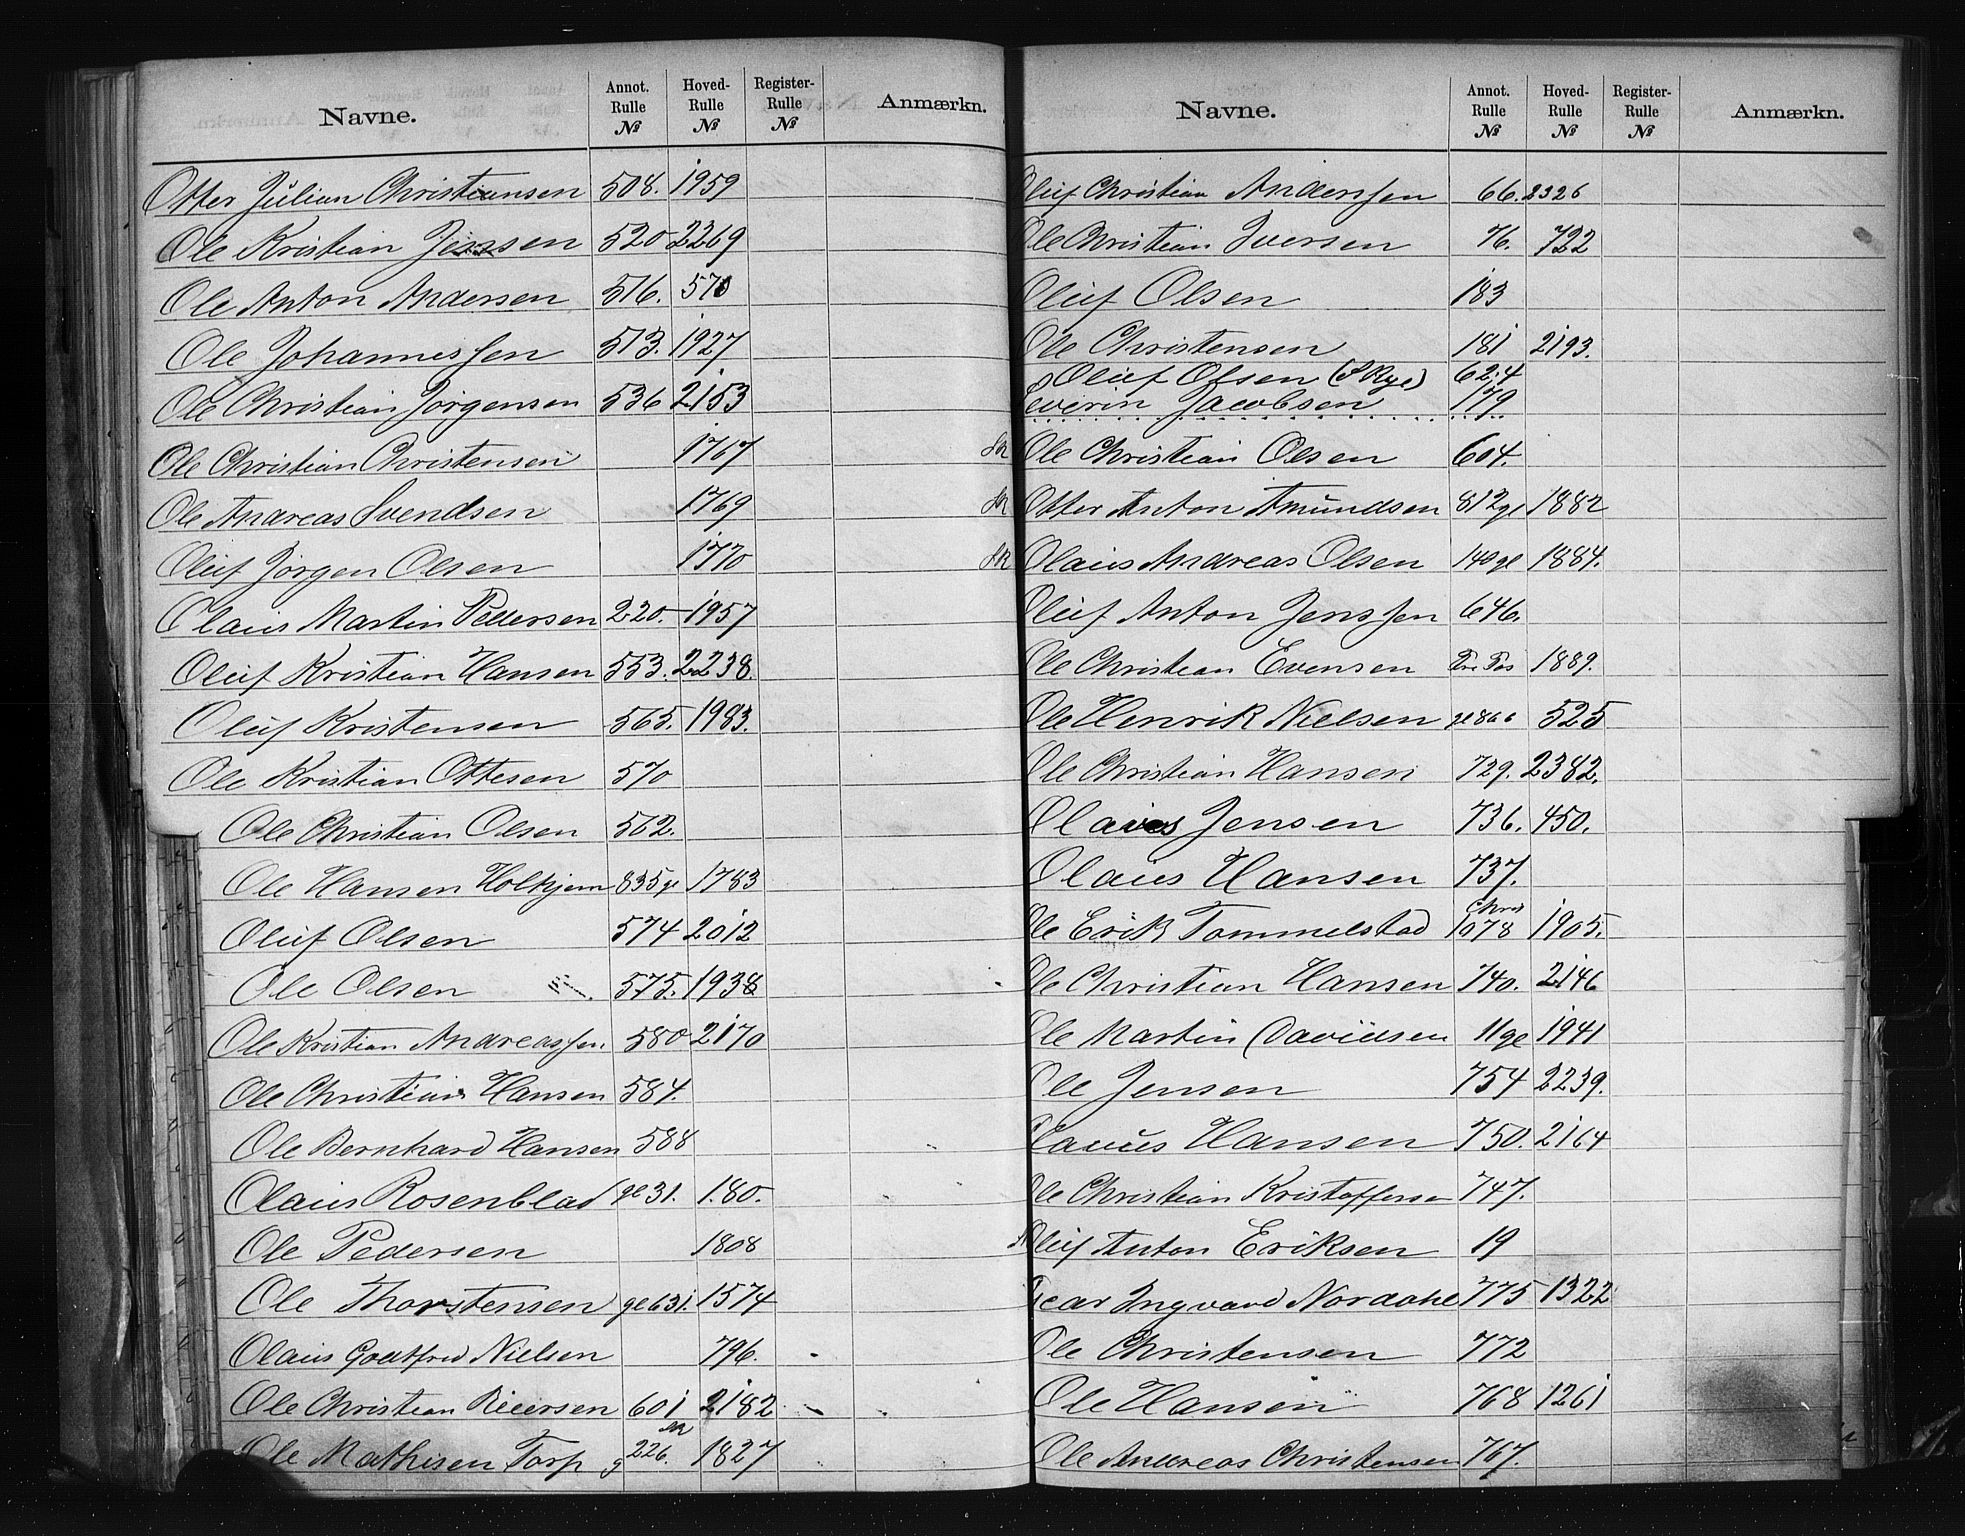 Navne. Annot. Rulle № Hoved-Rulle № Register-Rulle № Anmærkn.
Otter Julian Christiansen 508. 1959
Ole Kristian Jensen 520 2269
Ole Anton Andersen 516. 570
Ole Johannessen 513. 1927
Ole Christian Jörgensen 536 2153
Ole Christian Christensen 1767
Ole Andreas Svendsen 1769
Oluf Jörgen Olsen 1770
Olaus Martin Pedersen 220. 1957
Oluf Kristian Hansen 553. 2238.
Oluf Kristensen 565. 1983.
Ole Kristian Ottesen 570
Ole Christian Olsen 562.
Ole Hansen Holtkjern 835 gl 1783
Oluf Olsen 574 2012
Ole Olsen 575. 1938
Ole Kristian Andreassen 580 2170
Ole Christian Hansen 584.
Ole Bernhard Hansen 588
Olaus Rosenblad gl 31. 180.
Ole Pedersen 1808
Ole Thorstensen gl 631. 1574
Olaus Godtfred Nielsen 796.
Ole Christian Reiersen 601 2182
Ole Mathisen Torp g 226. 1827
Navne. Annot. Rulle № Hoved-Rulle № Register-Rulle № Anmærkn.
Oluf Christian Anderssen 66. 2326
Ole Christian Iversen 76. 722
Oluf Olsen 183
Ole Christensen 181 2193.
Oluf Olsen (S Rye) 624
Severin Jacobsen 179
SR Ole Christian Olsen 604.
SR Otter Anton Amundsen 812 gl 1882
SR Olaus Andreas Olsen 140 gl 1884.
Oluf Anton Jenssen 646.
Ole Christian Evensen 1889.
Ole Henrik Nielsen gl 866 525
Ole Christian Hansen 729. 2382.
Olaves Jensen 736. 450.
Olaus Hansen 737.
Ole Erik Tommelstad Chra 1078 1905.
Ole Christian Hansen 740. 2146
Ole Martin Davidsen 11 gl 1941
Ole Jensen 754 2239.
Olaus Hansen 750. 2164
Ole Christian Kristoffersen 747.
Oluf Anton Eriksen 19
Oscar Ingvard Nordahl 775 1322
Ole Christensen 772
Ole Hansen 768 1261
Ole Andreas Christensen 767.